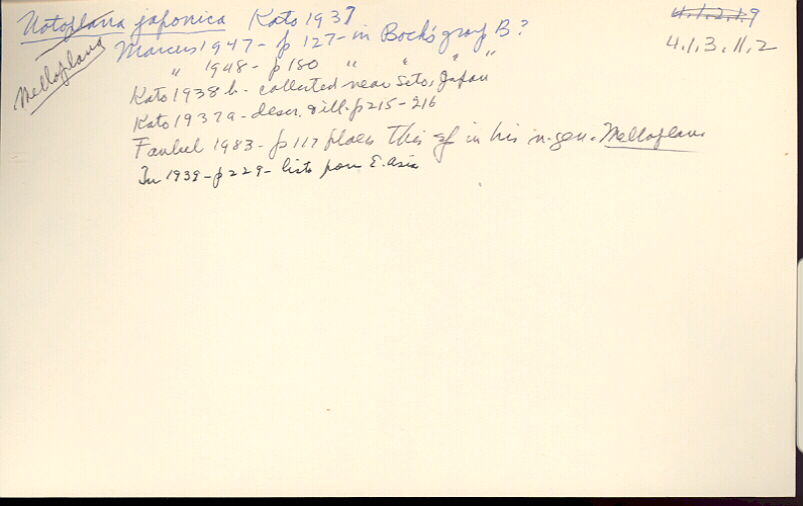 Notoplana japonica Kato 1937
4.1.2.1.9
Melloplana
Marcus 1947 - p 127 - in Bock's group B?
4.1.3.11.2
" 1948 - p 180 " " " "
Kato 1938 b - collected near Seto, Japan
Kato 1937a - descr. & ill. p 215 - 216
Faubel 1983 - p 117 places this sp in his n. gen. Melloplana
In 1939 - p 229 - lists from E. Asia